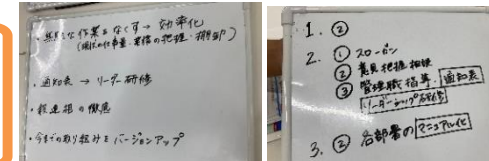 ・無駄な作業をなくす → 効率化
(現状の仕事量・業務の把握・棚卸)
・通知表 → リーダー研修
・報連相の徹底
・今までの取り組みをバージョンアップ
1. ②
2. ① スローガン
② 意見把握 相談
③ 管理職指導・通知表
リーダーシップ研修
3. ② 各部署のマニュアル化